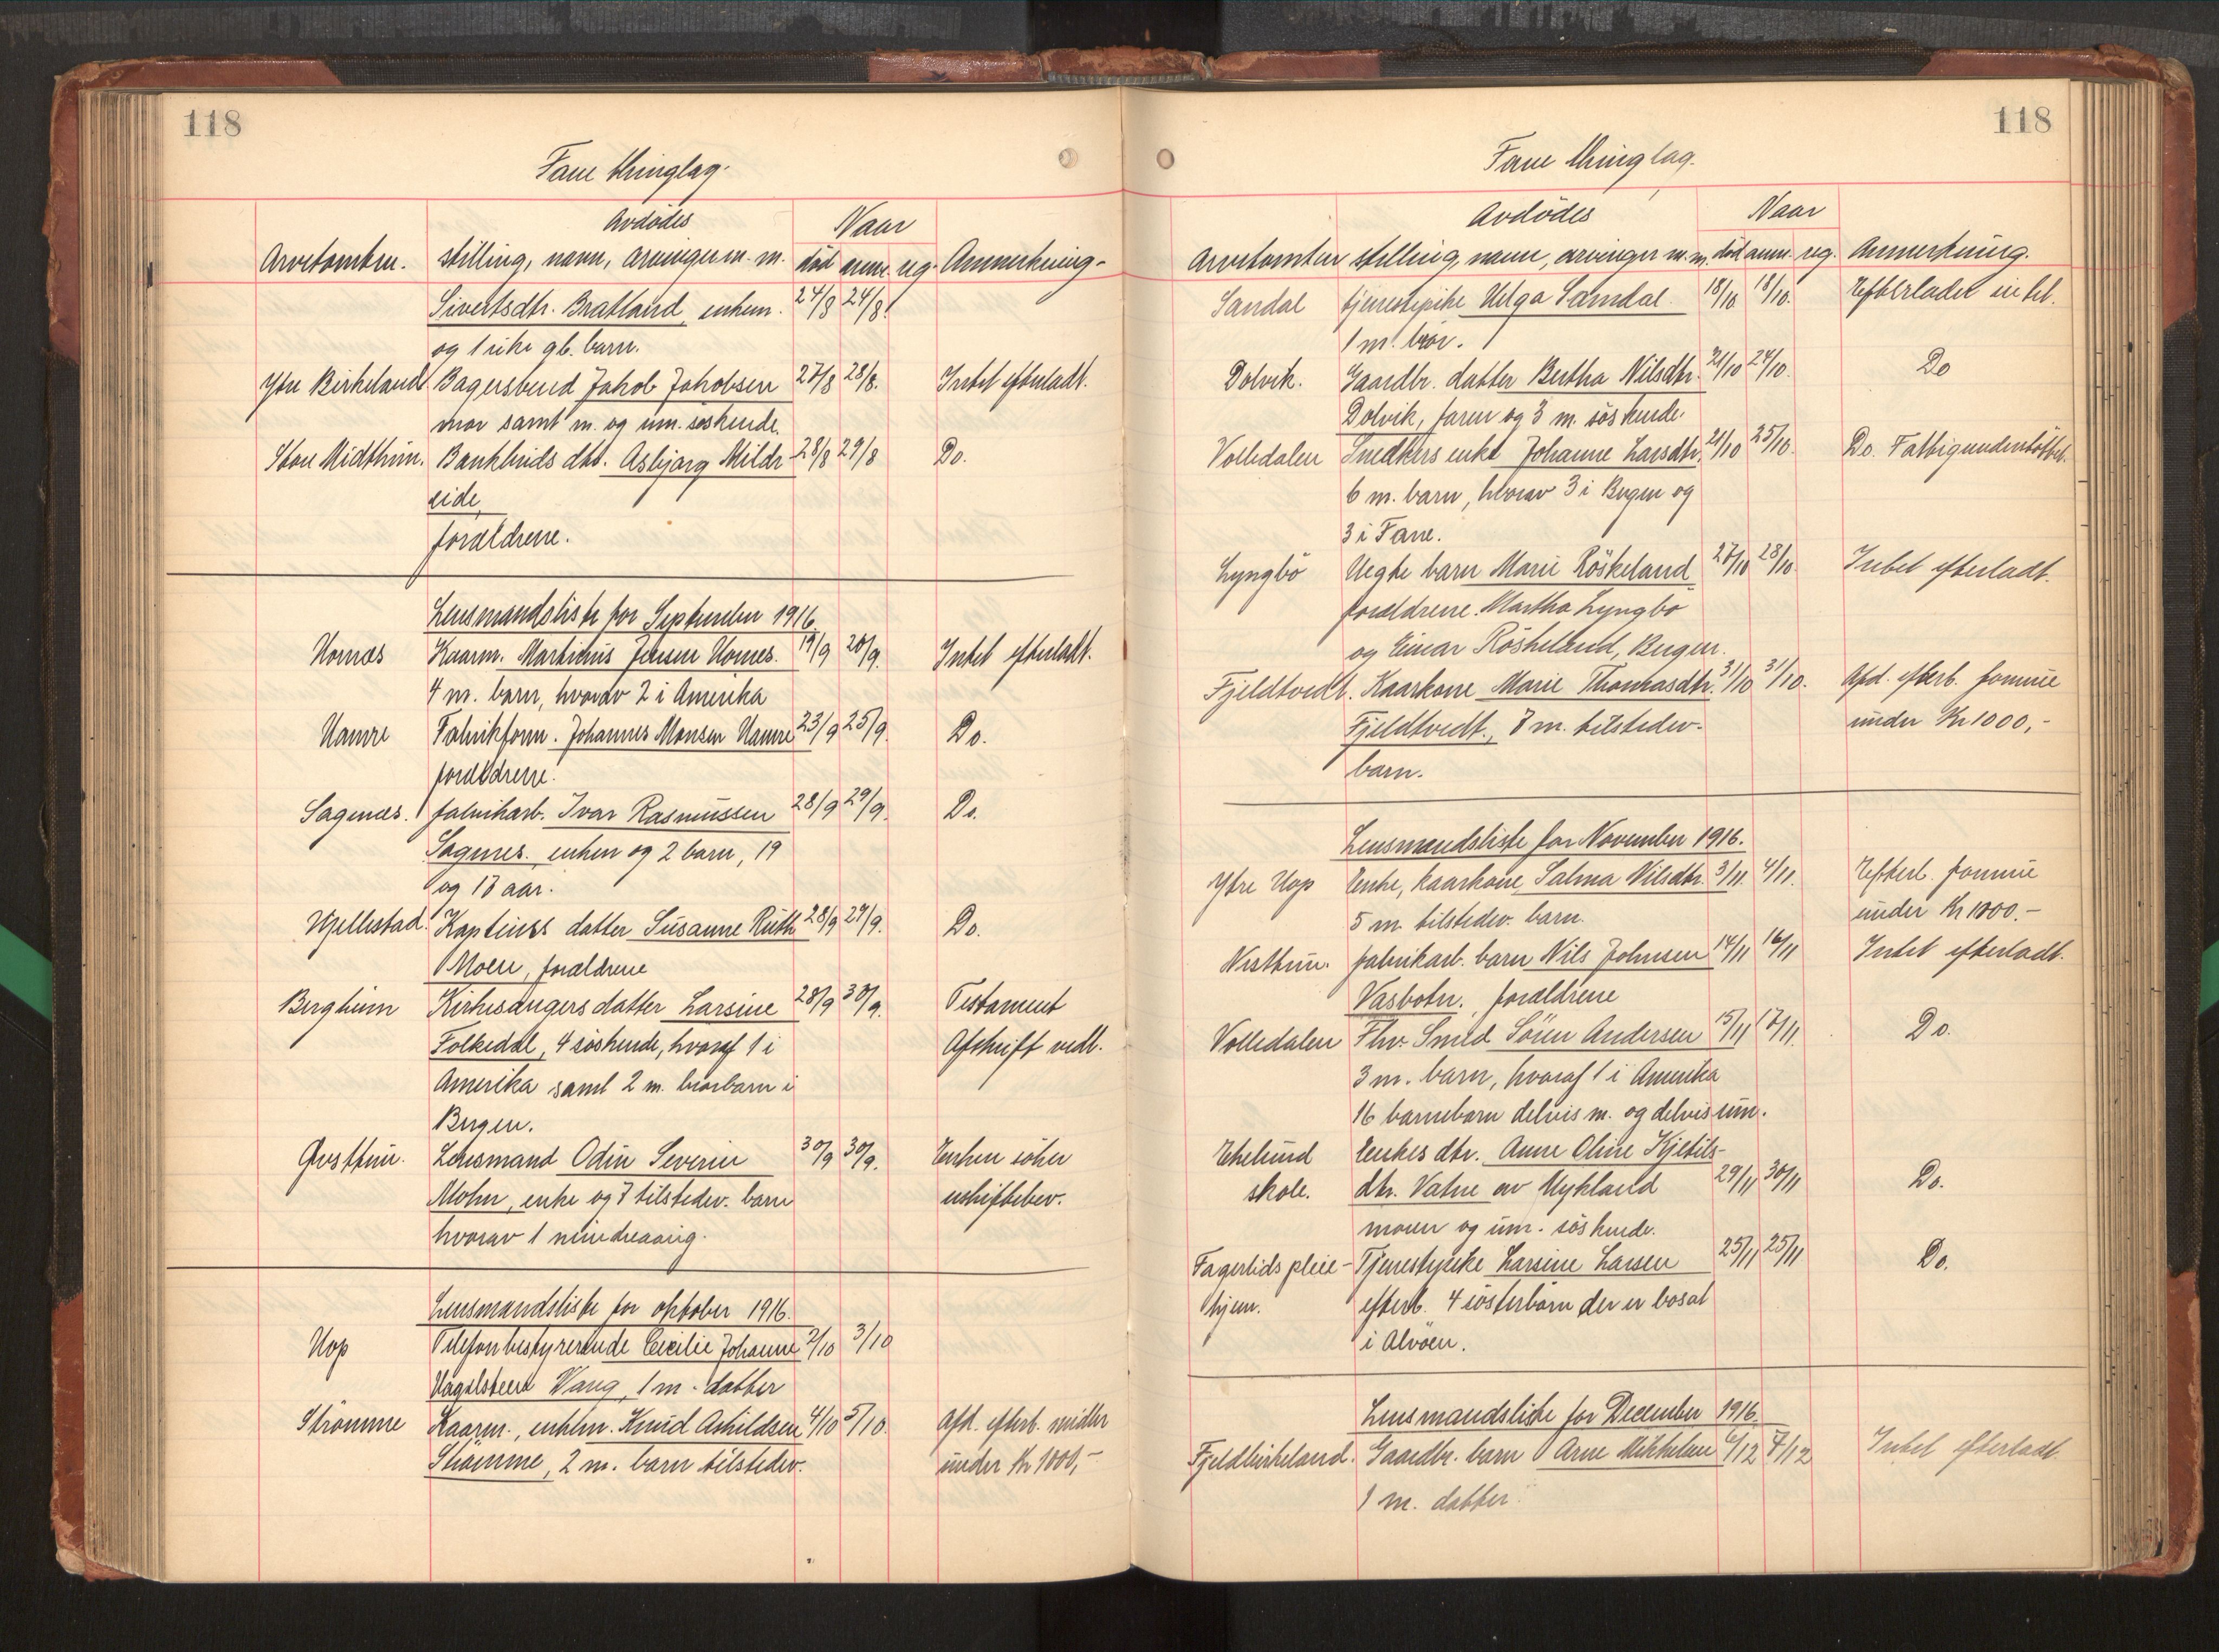 118
Fane thinglag.
Avdødes
Naar
Arvetomten. stilling, navn, arvinger m. m. død anm. reg. Anmerkning-
Sivertsdtr. Bratland, enkem. 24/8 24/8.
og 1 ikke gb. barn.
Ytre Birkeland Bagersvend Jakob Jakobsen 27/8 28/8. Intet efterladt.
mor samt m. og um. søskende.
Store Midthun. Bankbuds dtr. Asbjørg Mildr 28/8 29/8 Do.
eide,
forældrene.
Lensmandsliste for September 1916.
Hornæs Kaarm. Martinus Jensen Hornes. 19/9 20/9. Intet efterladt.
4 m. barn, hvorav 2 i Amerika
Hamre Fabrikform. Johannes Monsen Hamre 23/9 25/9. Do.
forældrene.
Sagenæs. fabrikarb. Ivar Rasmussen 28/9 29/9. Do.
Sagnes. enken og 2 barn, 19
og 17 aar.
Hjellestad. Kapteins datter Susanne Ruth 28/9 29/9. Do.
Moen, forældrene
Bergheim Kirkesangers datter Larsine 28/9 30/9. Testament
Folkedal, 4 søskende, hvoraf 1 i Afskrift vedl.
Amerika samt 2 m. brorbarn i
Bergen.
Øvsttun. Lensmand Odin Severin 30/9 30/9. Enken søker
Mohn, enke og 7 tilstedev. barn uskiftebev.
hvorav 1 mindreaarig.
Lensmandsliste for oktober 1916.
Hop Telefonbestyrerinde Cecilie Johanne 2/10 3/10
Hagelsteen Wang, 1 m. datter
Strømme Kaarm., enkem. Knud Askildsen 4/10 5/10. Afd. efterl. midler
Strømme, 2 m. barn tilstedev. under Kr 1000,-
118
Fane thinglag.
Avdødes
Naar
Arvetomten stilling, navn, arvinger m. m. død anm. reg. Anmerkning.
Sandal tjenestepike Helga Samdal 18/10 18/10. Efterlader intet.
1 m. bror.
Dolvik. Gaardbr. datter Bertha Nilsdtr. 21/10 24/10. Do
Dolvik, faren og 3 m. søskende.
Volledalen Snedkers enke Johanne Larsdtr. 21/10 25/10. Do. Fattigunderstøttet.
6 m. barn, hvorav 3 i Bergen og
3 i Fane.
Lyngbø Uegte barn Marie Røskeland 27/10 28/10. Intet efterladt.
forældrene. Martha Lyngbø
og Einar Røskeland, Bergen.
Fjeldtvedt. Kaarkone Marie Thomasdtr. 31/10 31/10. Afd. efterl. formue
Fjeldtvedt., 7 m. tilstedev. under Kr 1000,-
barn.
Lensmandsliste for November 1916.
Ytre Hop Enke, kaarkone Salma Nilsdtr. 3/11. 4/11. Efterl. formue
5 m. tilstedev. barn. under Kr 1000.-
Nesttun. fabrikarb. barn Nils Johnsen 14/11 16/11 Intet efterladt.
Vasbotn. forældrene
Volledalen Fhv. Smed Søren Andersen 15/11 17/11. Do.
3 m. barn, hvoraf 1 i Amerika
16 barnebarn delvis m. og delvis um.
Ekelund Enkes dtr. Anne Oline Kjetils-
skole. dtr. Vatne av Mykland 29/11 30/11 Do.
moren og um. søskende.
Fagerlids pleie- Tjenestepike Larsine Larsen 25/11 25/11 Do.
hjem. efterl. 4 søsterbørn der er bosat
i Alvøen.
Lensmandsliste for December 1916.
Fjeldbirkeland. Gaardbr. barn Arne Mikkelsen 6/12 7/12 Intet efterladt
1 m. datter.